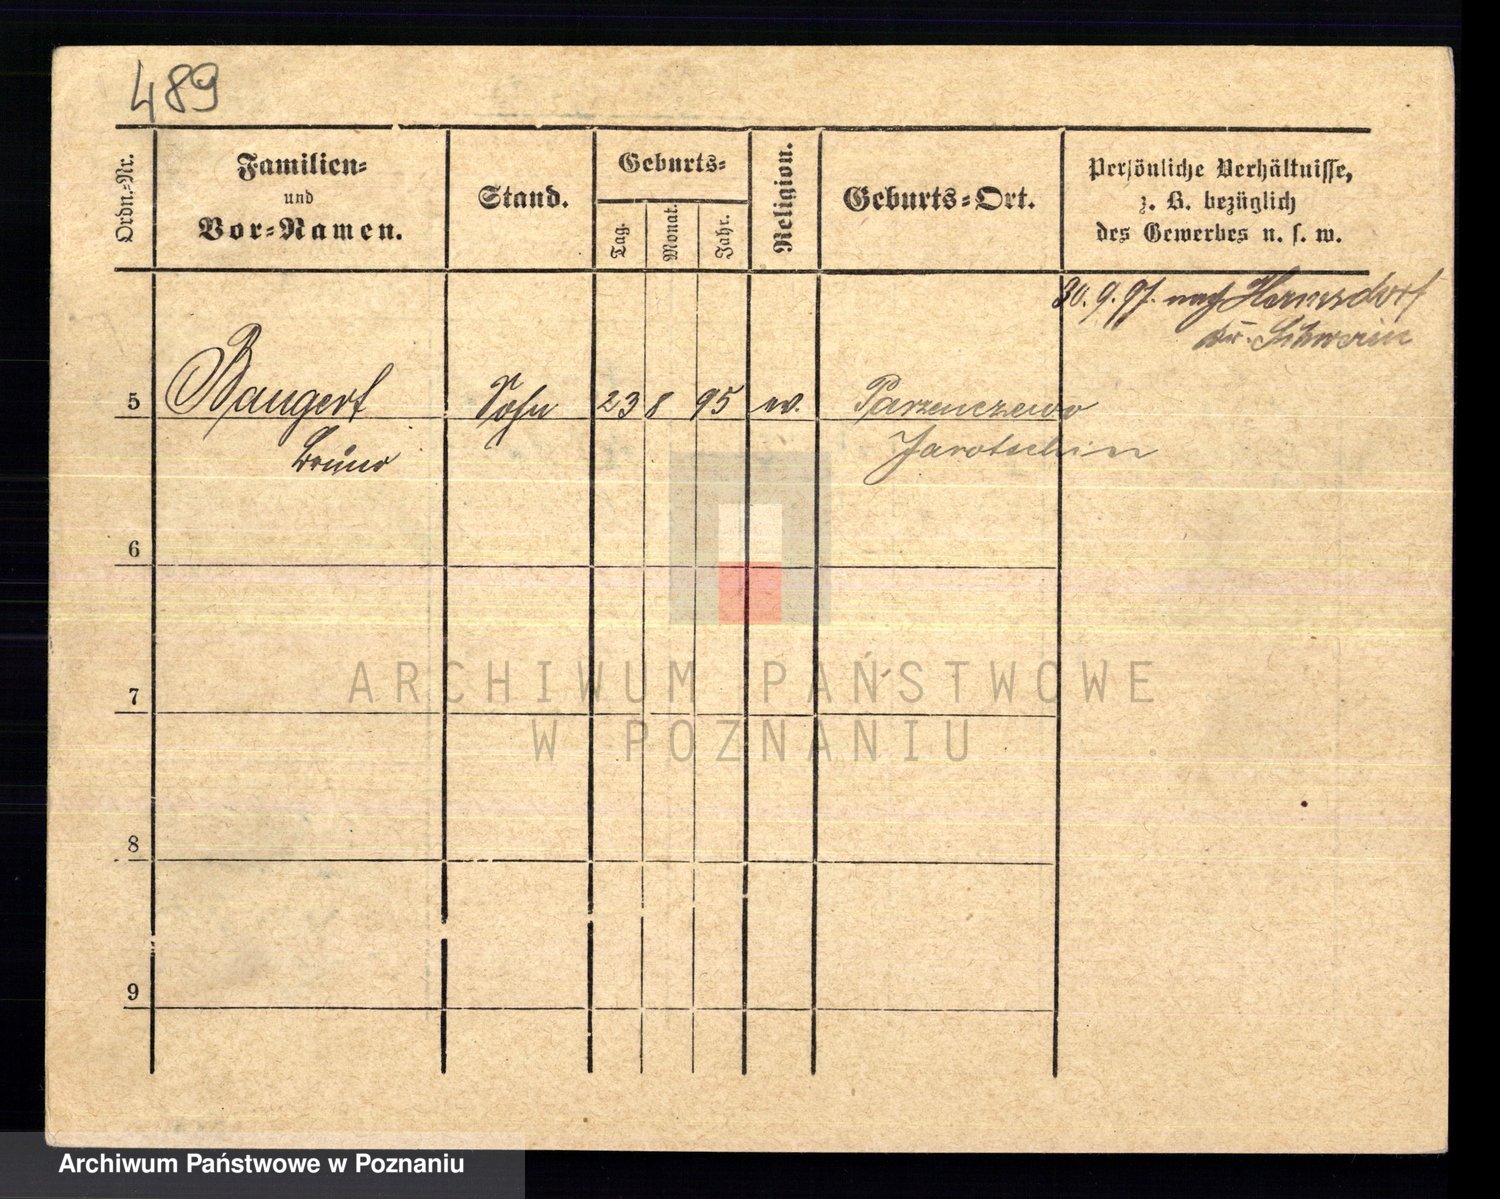 489
Ordn.-Nr.
Familien-
und
Vor-Namen.
Stand.
Geburts-
Tag.
Monat.
Jahr.
Religion.
Geburts-Ort.
Persönliche Verhältnisse,
z. B. bezüglich
des Gewerbes u. s. w.
30.9.97. nach Hermsdorf
Kr. Schwerin
5 Bangert Sohn 23 8 95 ev. Parzenczewo
Bruno Jarotschin
6
7
8
9
ARCHIWUM PAŃSTWOWE
W POZNANIU
Archiwum Państwowe w Poznaniu